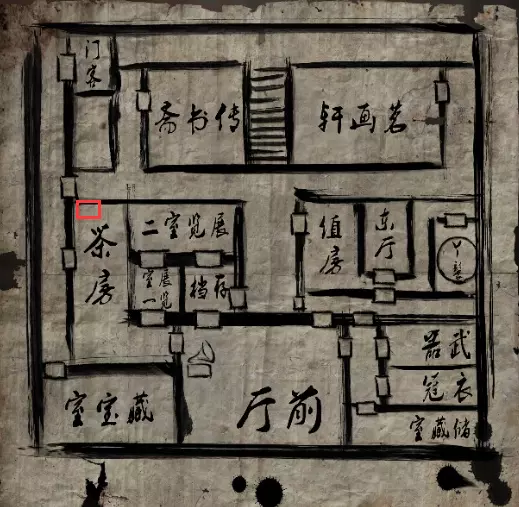 门客
传书斋
茗画轩
茶房
展览室二
展览
室一
存档
值房
东厅
丫鬟
武器
衣冠
储藏室
藏宝室
前厅